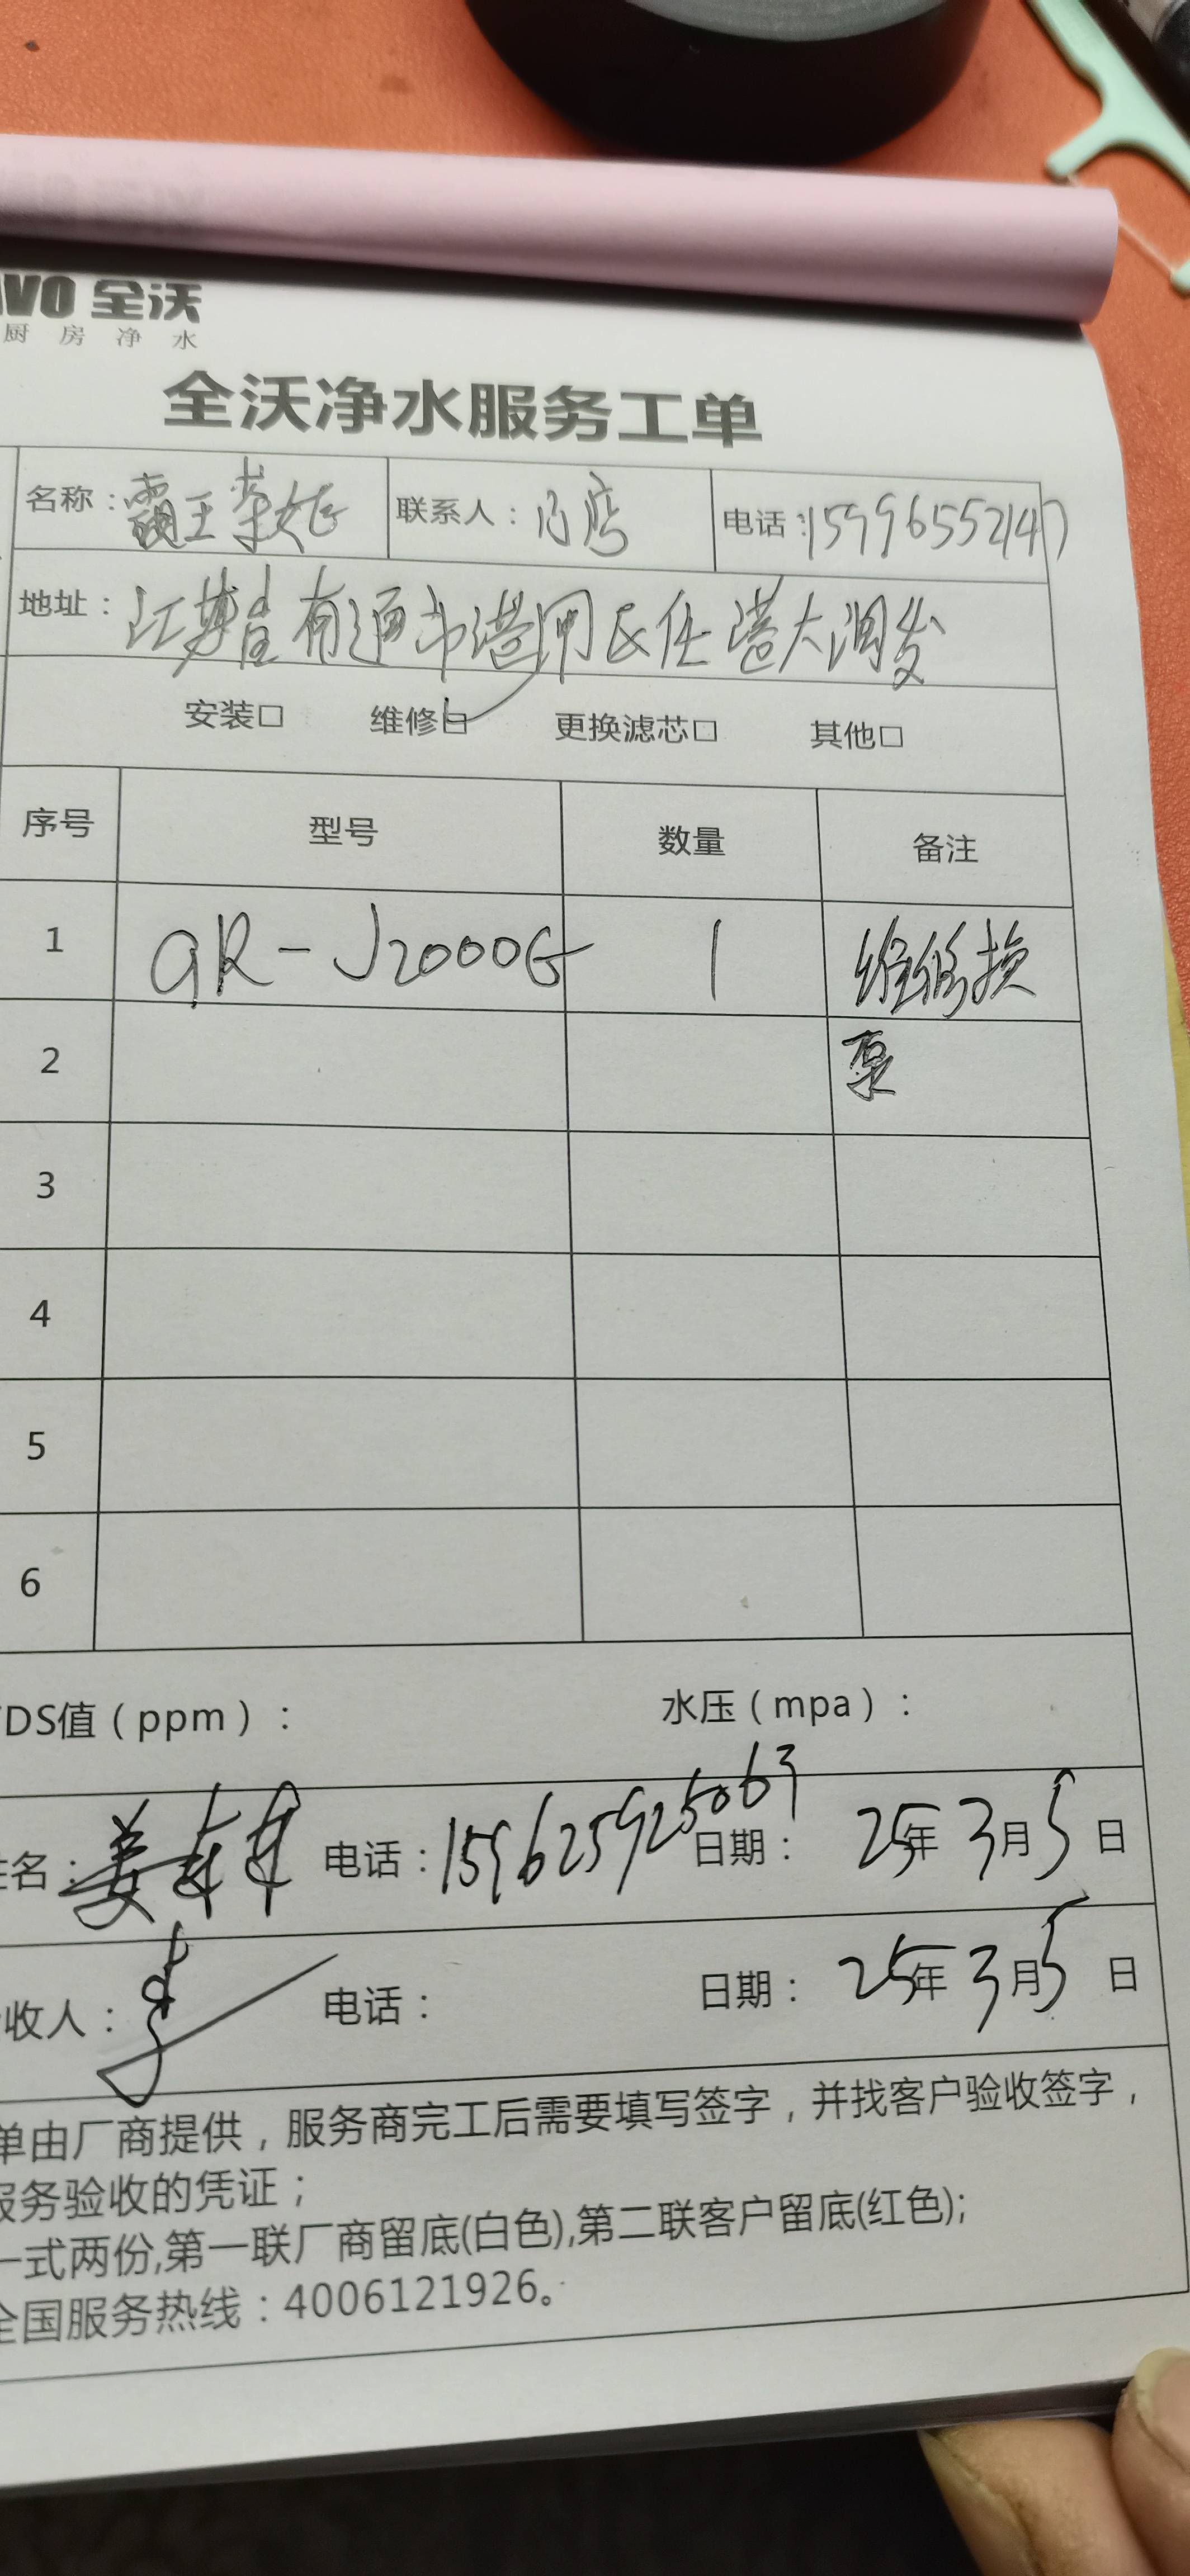 IVO 全沃
厨房净水
全沃净水服务工单
名称：霸王茶姬 联系人： 店 电话：15996552147
地址：江苏省南通市港闸区任港大润发
安装□ 维修□ 更换滤芯□ 其他□
序号 型号 数量 备注
1 QR-J2000G 1 维修换
2 泵
3
4
5
6
DS值（ppm）： 水压（mpa）：
姓名：姜 电话： 日期：25年3月5日
收人： 电话： 日期：25年3月5日
单由厂商提供，服务商完工后需要填写签字，并找客户验收签字，
服务验收的凭证；
一式两份,第一联厂商留底(白色),第二联客户留底(红色);
全国服务热线：4006121926。